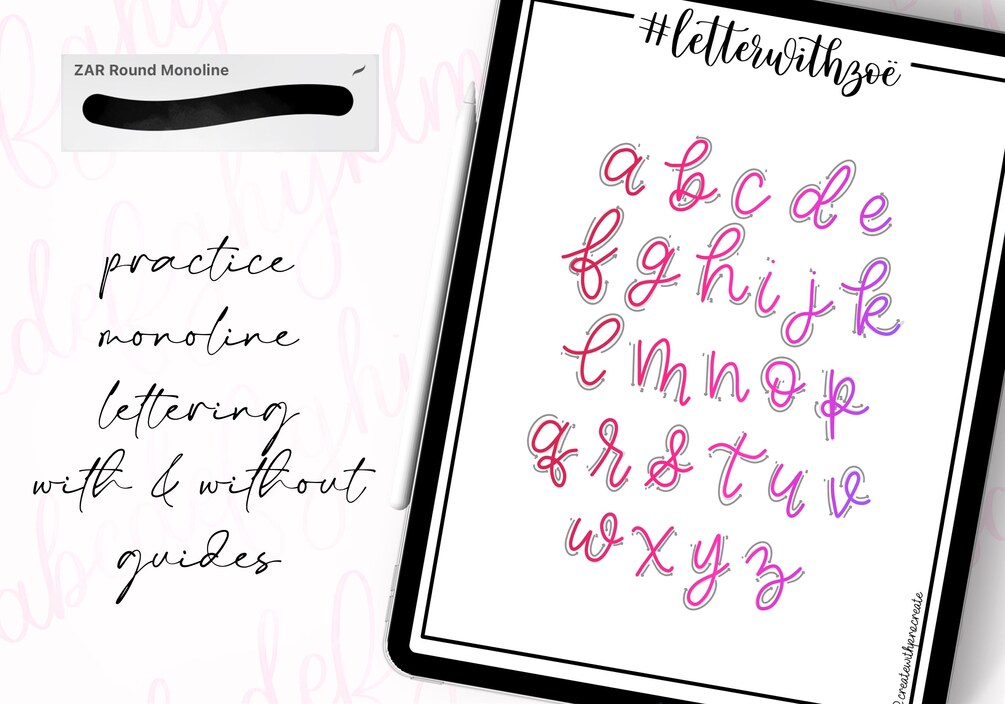 ZAR Round Monoline
practice
monoline
lettering
with & without
guides
#letterwithzoë
a b c d e
f g h i j k
l m n o p
q r s t u v
w x y z